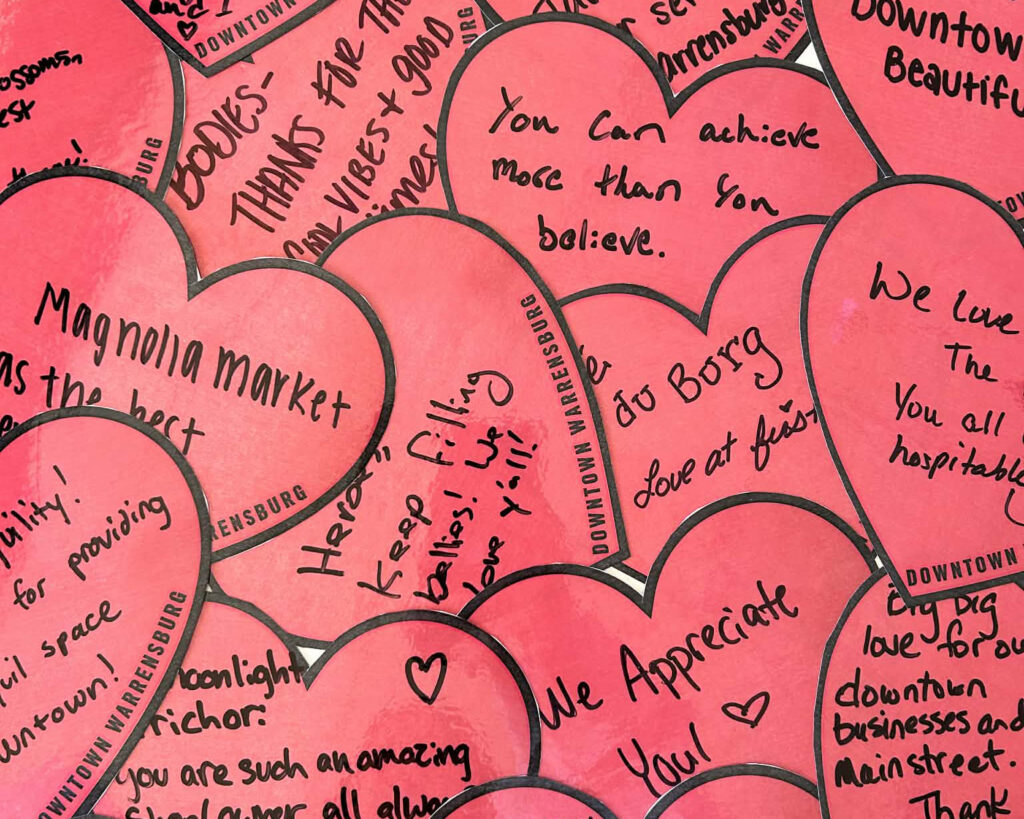 and I
DOWNTOWN
BODIES-
THANKS FOR THE
COOL VIBES + GOOD
times!
URG
arrensburg
WARRENS
Downtown
Beautiful
ossoms,
est
BURG
You can achieve
more than you
believe.
Magnolia market
as the best
RENSBURG
Heroz"
Keep filling
bellies! We
love y'all!
DOWNTOWN WARRENSBURG
du Borg
Love at first
We love
The
You all
hospitable
DOWNTOWN
uility!
for providing
uil space
wntown!
OWNTOWN WARRENSBURG
oonlight
richor:
you are such an amazing
We Appreciate
You!
Big big
love for ou
downtown
businesses and
Mainstreet.
Thank